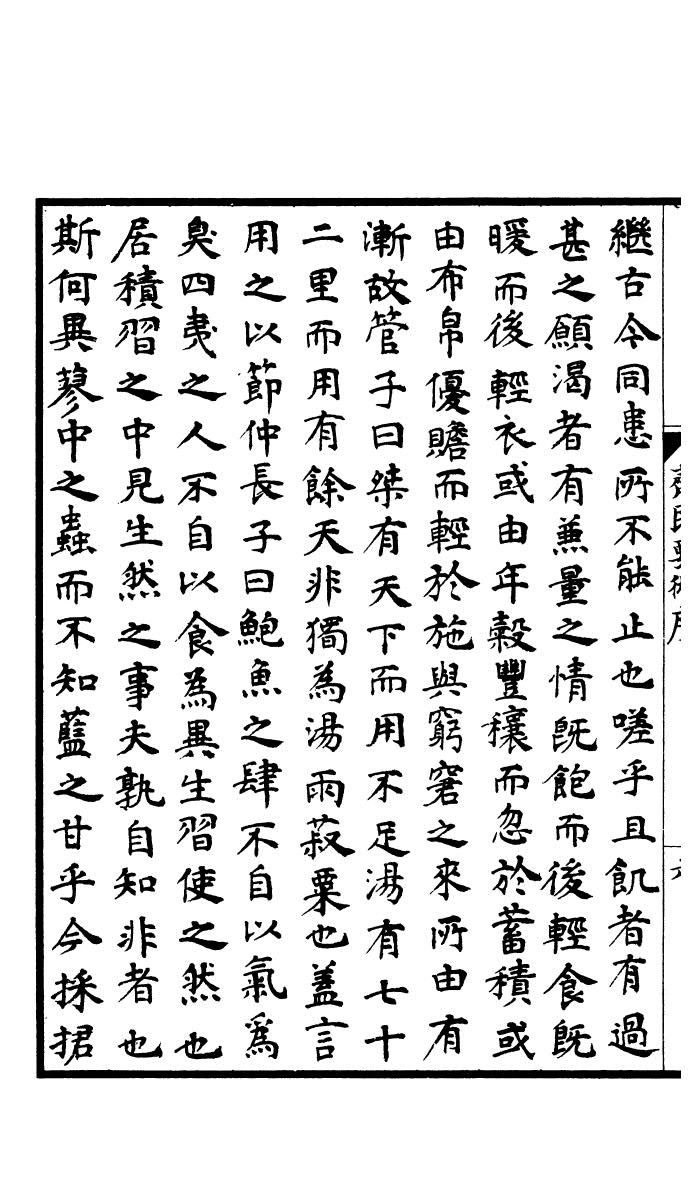 齊民要術序
繼古今同患所不能止也嗟乎且飢者有過
甚之願渴者有兼量之情既飽而後輕食既
暖而後輕衣或由年穀豐穰而忽於蓄積或
由布帛優贍而輕於施與窮窘之來所由有
漸故管子曰桀有天下而用不足湯有七十
二里而用有餘天非獨為湯雨菽粟也蓋言
用之以節仲長子曰鮑魚之肆不自以氣爲
臭四夷之人不自以食為異生習使之然也
居積習之中見生然之事夫孰自知非者也
斯何異蓼中之蟲而不知藍之甘乎今採捃